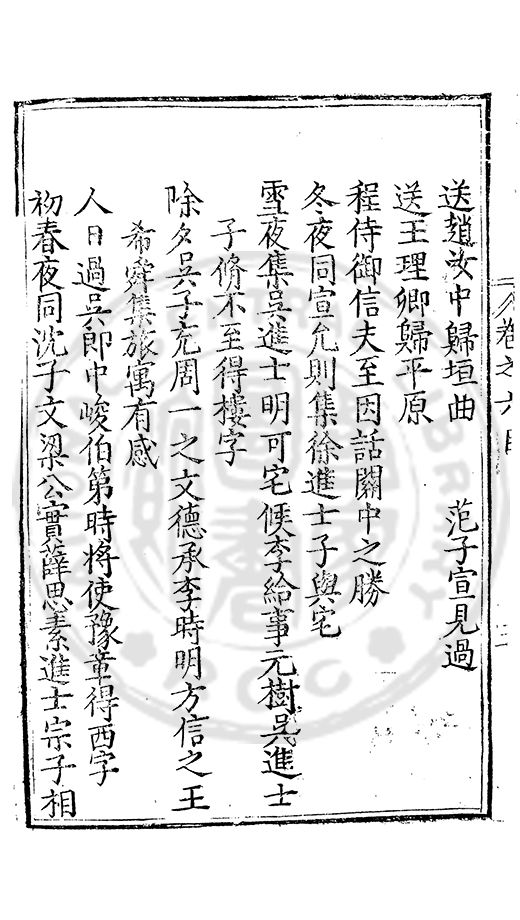 卷之六目
送趙汝中歸垣曲 范子宣見過
送王理卿歸平原
程侍御信夫至因話關中之勝
冬夜同宣允則集徐進士子與宅
雪夜集吳進士明可宅候李給事元樹吳進士
子脩不至得樓字
除夕吳子充周一之文德承李時明方信之王
希舜集旅寓有感
人日過吳郎中峻伯第時將使豫章得西字
初春夜同沈子文梁公實薛思素進士宗子相